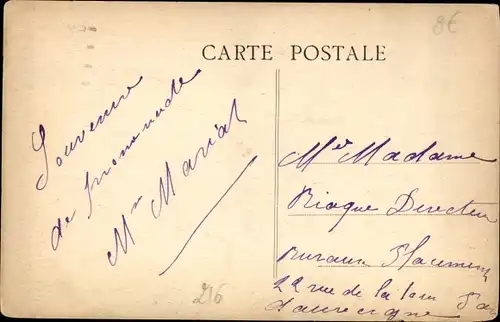 8€
CARTE POSTALE
Souvenir
de promenade
Mr Marial
Mr Madame
Riaque Directeur
bureau
22 rue de la tour
d'auvergne
216